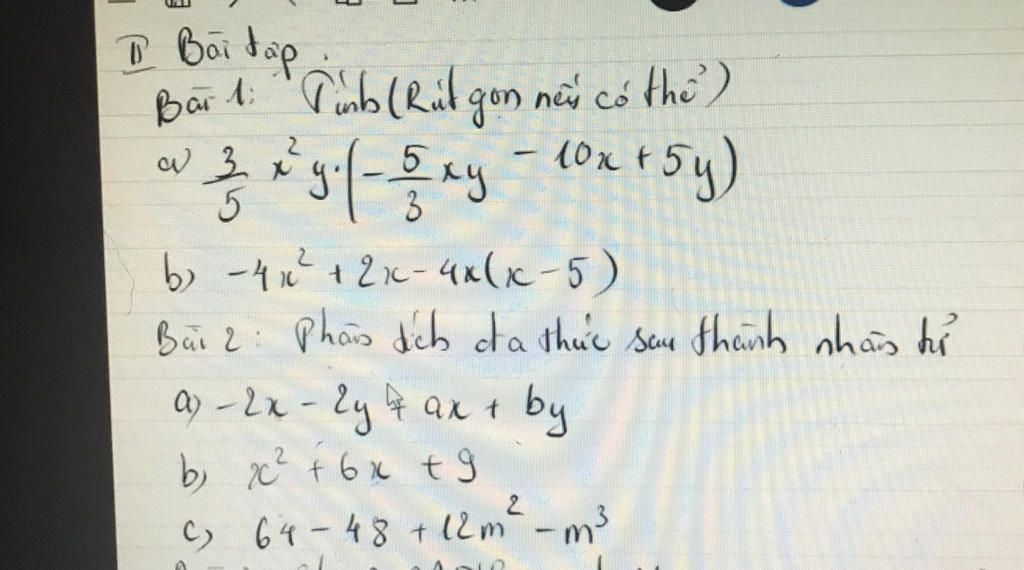 II Bài tập.
Bài 1: Tính (Rút gọn nếu có thể)
a) 3/5 x²y·(-5/3 xy - 10x + 5y)
b) -4x² + 2x - 4x(x - 5)
Bài 2: Phân tích đa thức sau thành nhân tử
a) -2x - 2y + ax + by
b) x² + 6x + 9
c) 64 - 48 + 12m² - m³